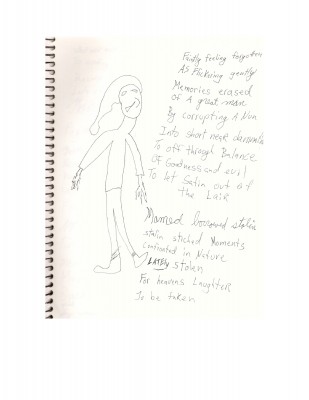 Faintly feeling forgotten
As Flickring gently
Memories erased
of A great man
By corrupting A Nun
Into short near
To off through Balance
Of Goodness and evil
To let Satin out of
the Lair
borrowed stolen
stolen stiched Moments
in Nature
LATELY stolen
For heavens Laughter
To be taken